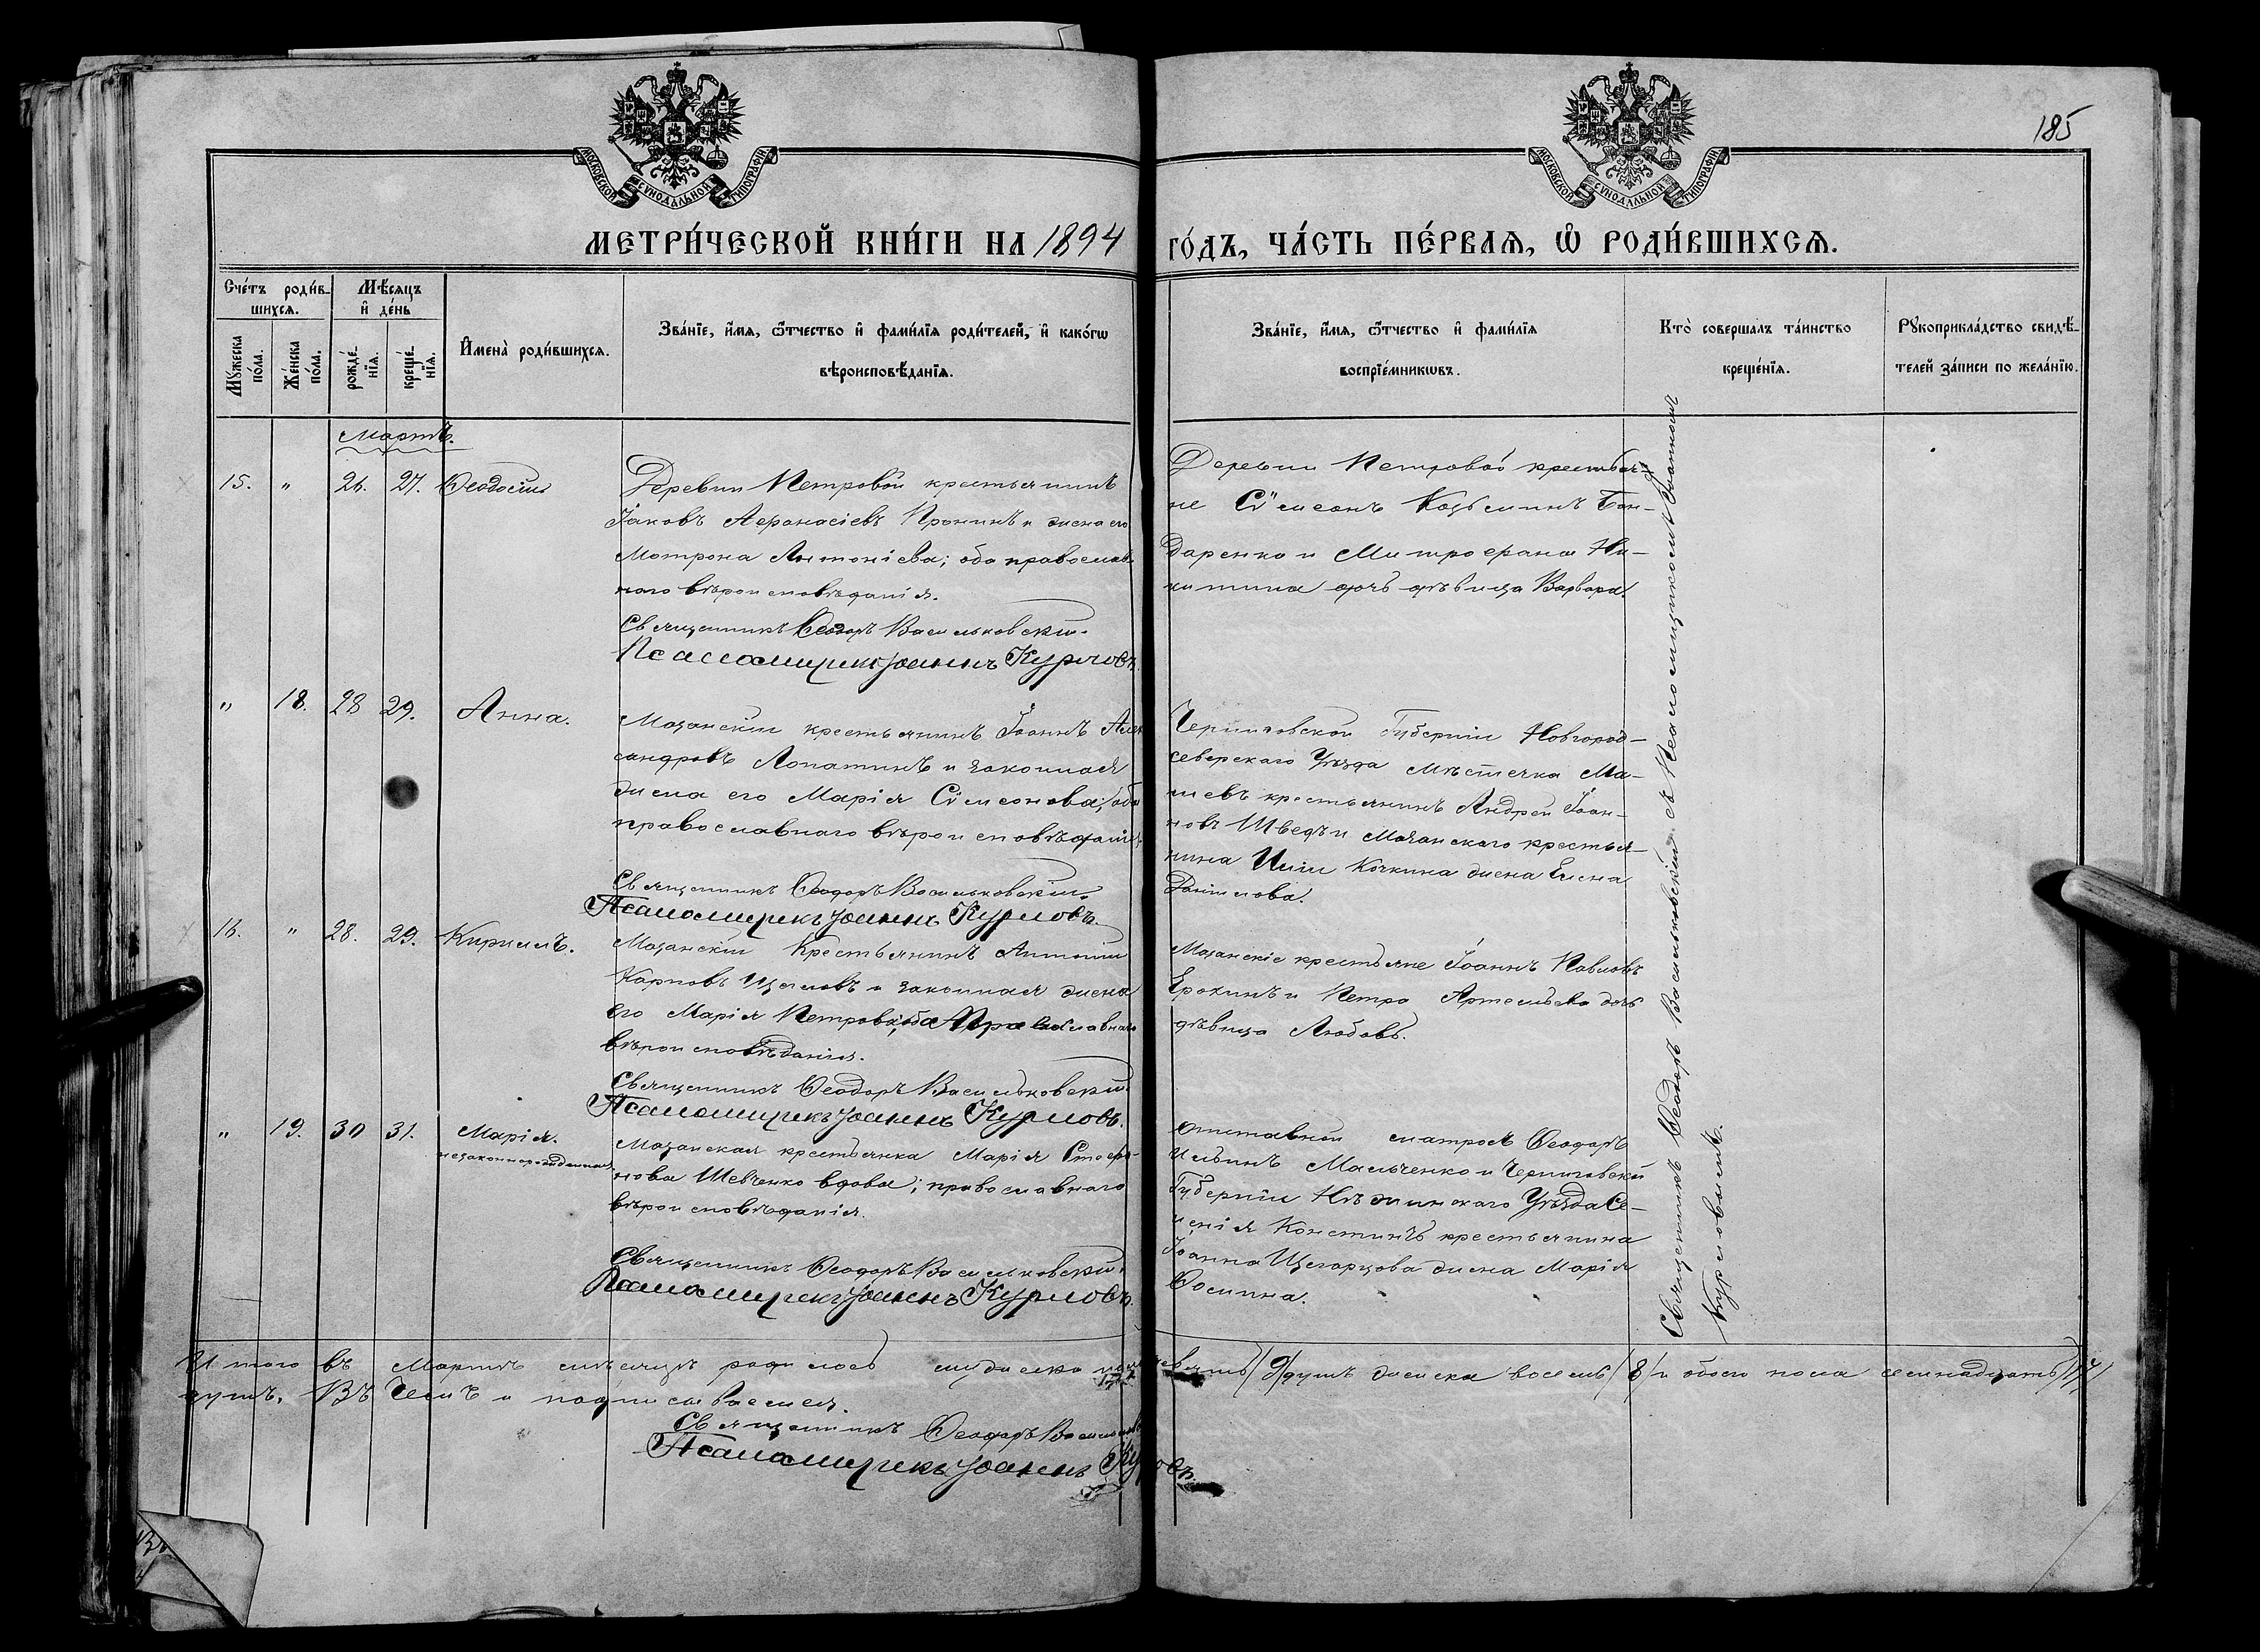 185
МОСКОВСКОЙ СѴНОДАЛЬНОЙ ТИПОГРАФІИ
МОСКОВСКОЙ СѴНОДАЛЬНОЙ ТИПОГРАФІИ
МЕТРИ́ЧЕСКОЙ КНИ́ГИ НА 1894 ГО́ДЪ, ЧА́СТЬ ПЕ́РВАѦ, Ѡ РОДИ́ВШИХСѦ.
Сче́тъ роди́в-
шихсѧ.
Мѣ́сяцъ
и де́нь
Мꙋ́жеска по́ла.
Же́нска по́ла.
рожде́-
нїѧ.
креще́-
нїѧ.
Имена̀ роди́вшихсѧ.
Зва́нїе, и́мѧ, ѻ́тчество и фами́лїѧ роди́телей, и како́гѡ
вѣроисповѣ́данїѧ.
Зва́нїе, и́мѧ, ѻ́тчество и фами́лїѧ
воспрїе́мникѡвъ.
Кто̀ совершалъ та́инство
креще́нїѧ.
Рꙋкоприкла́дство свидѣ́-
телей за́писи по жела́нїю.
Мартъ.
15. " 26. 27. Ѳеодосій
Деревни Петровой крестьянинъ
Іаковъ Аѳанасіевъ Пронинъ и жена его
Матрона Антоніева; оба православ-
наго вѣроисповѣданія.
Священникъ Ѳеодоръ Васильковскій.
Псаломщикъ Іоаннъ Курловъ.
Деревни Петровой крестья-
не Сѵмеонъ Козьминъ Бон-
даренко и Митрофана Ни-
китина дочь дѣвица Варвара.
" 18. 28 29. Анна.
Мазанскій крестьянинъ Іоаннъ Алек
сандровъ Лопатинъ и законная
жена его Марія Сѵмеонова; оба
православнаго вѣроисповѣданія
Священникъ Ѳеодоръ Васильковскій.
Псаломщикъ Іоаннъ Курловъ.
Черниговской Губерніи Новгород-
северскаго Уѣзда мѣстечка
крестьянинъ Андрей Іоан-
новъ Шведъ и Мазанскаго крестья-
нина Иліи Кочкина жена Елена
Даніилова.
16. " 28. 29. Кириллъ.
Мазанскій Крестьянинъ Антоній
Карповъ Щегловъ и законная жена
его Марія Петрова; оба Православнаго
вѣроисповѣданія.
Священникъ Ѳеодоръ Васильковскій.
Псаломщикъ Іоаннъ Курловъ.
Мазанскіе крестьяне Іоаннъ Павловъ
Ерохинъ и Петра Артемьева дочь
дѣвица Любовь.
" 19. 30 31. Марія.
незаконнорожденная
Мазанская крестьянка Марія Стефа-
нова Шевченко вдова; православнаго
вѣроисповѣданія.
Священникъ Ѳеодоръ Васильковскій.
Псаломщикъ Іоаннъ Курловъ.
Отставной матросъ Ѳеодоръ
Ильинъ Мальченко и Черниговской
Губерніи Нѣжинскаго Уѣзда Се-
ленія крестьянина
Іоанна Щегарцова жена Марія
Фомина.
Священникъ Ѳеодоръ Васильковскій съ Псаломщикомъ Іоанномъ
Курловымъ.
Итого въ Мартѣ мѣсяцѣ родилось мужеска пола девять /9/ душъ женска восемь /8/ и обоего пола семнадцать /17/
душъ. Въ чемъ и подписываемся.
Священникъ Ѳеодоръ Васильковскій
Псаломщикъ Іоаннъ Курловъ.